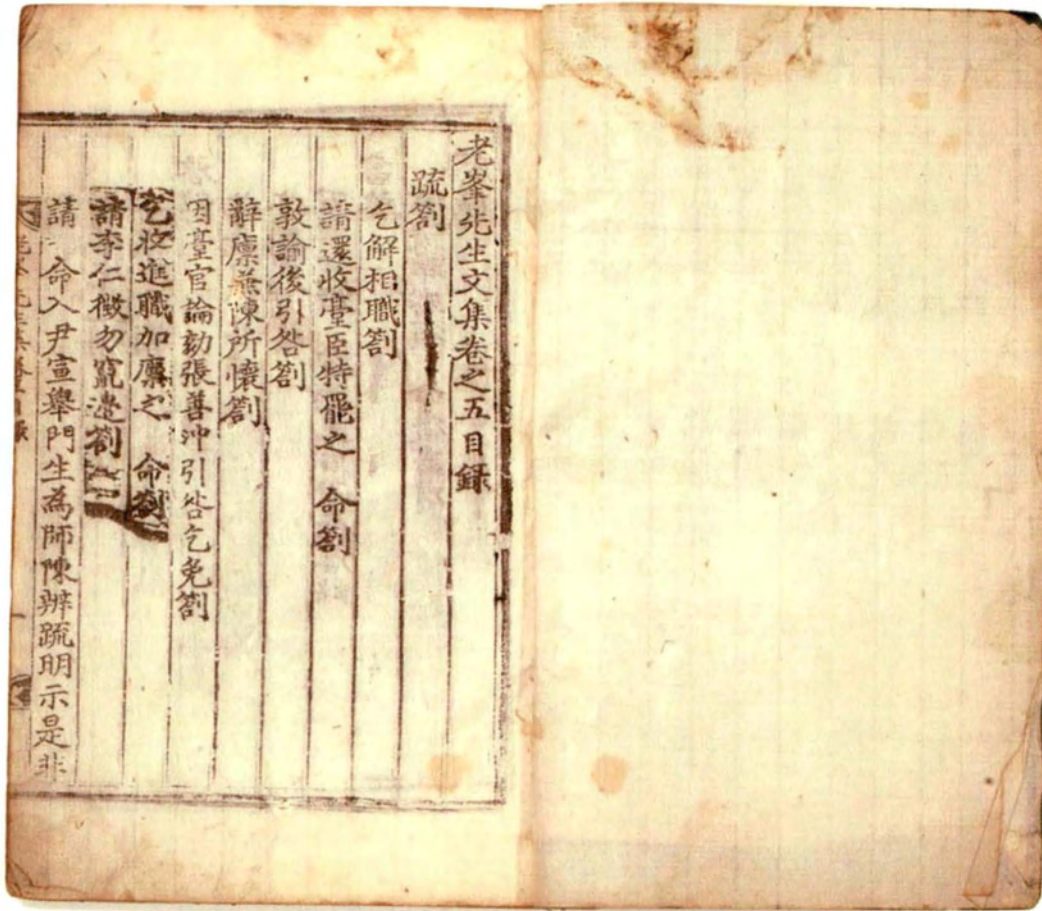 老峯先生文集卷之五目錄
疏劄
乞解相職劄
請還收臺臣特罷之 命劄
敦諭後引咎劄
辭廩兼陳所懷劄
因臺官論劾張善冲引咎乞免劄
乞收進職加廩之 命劄
請李仁徵勿竄逐劄
請 命入尹宣舉門生為師陳辨疏明示是非